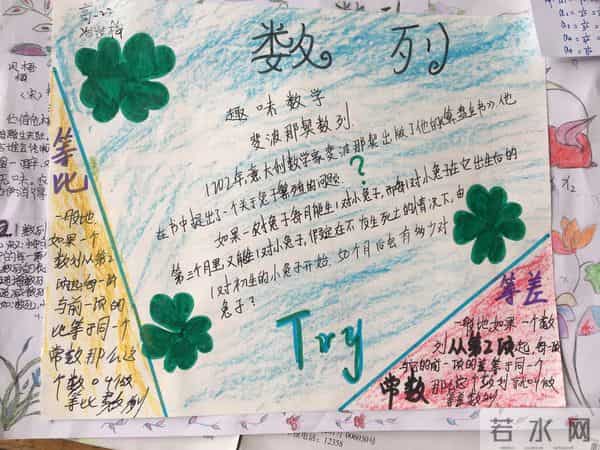 数 列
趣味数学
斐波那契数列
1202年,意大利数学家斐波那契出版了他的《算盘全书》他
在书中提出了一个关于兔子繁殖的问题?
如果一对兔子每月能生1对小兔子,而每1对小兔子在它出生后的
第三个月里,又能生1对小兔子,假定在不发生死亡的情况下,由
1对初生的小兔子开始,50个月后会有多少对
兔子?
Try
等比
一般地
如果一个
数列从第2
项起,每一项
与前一项的
比等于同一个
常数那么这
个数列叫做
等比数列
等差
一般地如果一个数
列从第2项起,每一项
与它的前一项的差等于同一个
常数那么这个数列就叫做
等差数列
若水网
12358
006030号